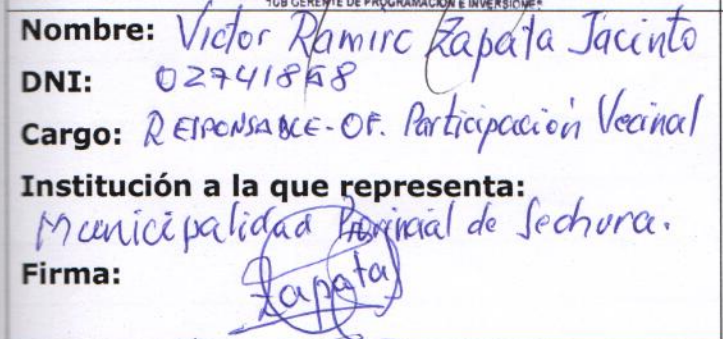 SUB GERENTE DE PROGRAMACIÓN E INVERSIONES
Nombre: Victor Ramirc Zapata Jacinto
DNI: 02741868
Cargo: RESPONSABLE-OF. Participación Vecinal
Institución a la que representa:
Municipalidad Provincial de Sechura.
Firma: Zapata